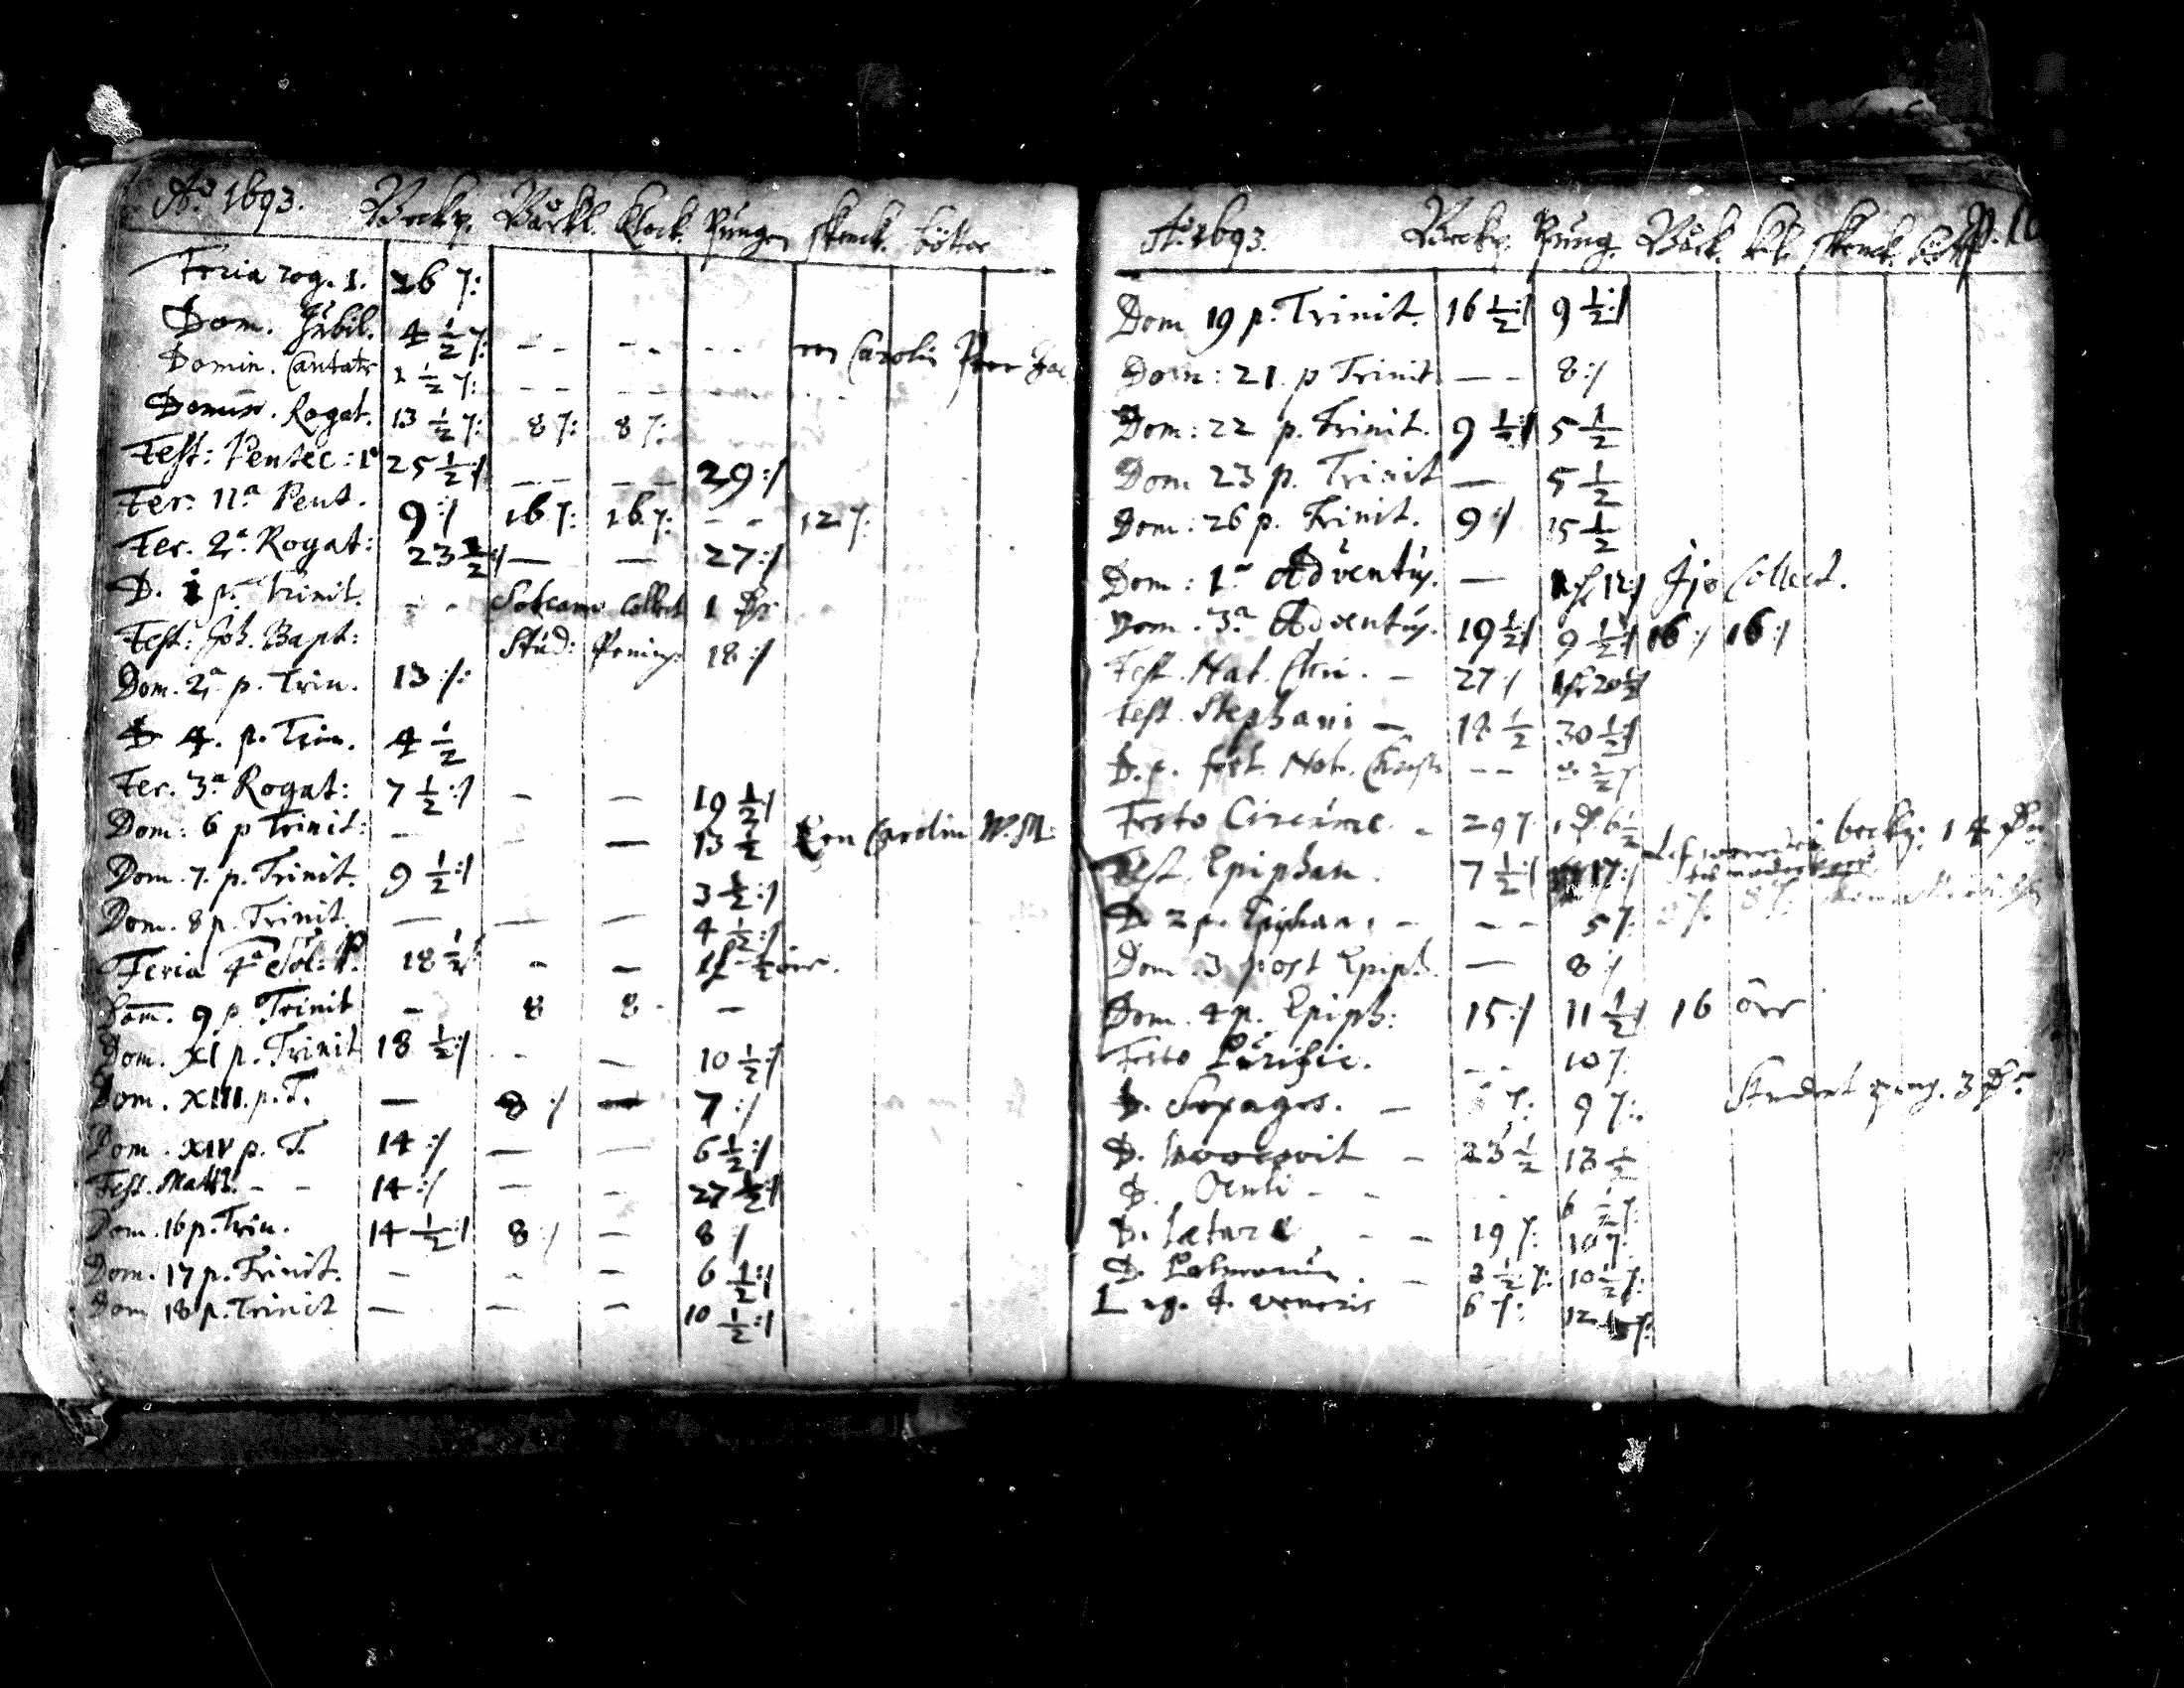 Ao. 1693. Beckn. Bårkl. Klock. Pungen skenck. böter
Feria rog. 1. 26 :/
Dom. Jubil. 4 1/2 :/ - - - - - -
Domin. Cantate 1 1/2 :/ - - - - Carolin
Domin. Rogat. 13 1/2 :/ 8 :/ 8 :/
Fest: Pentec: 1a 25 1/2 :/ - - - - 29 :/
Fer. 11a Pent. 9 :/ 16 :/ 16 :/ - - 12 :/
Fer. 2a. Rogat: 23 1/2 :/ — — 27 :/
D. 1 p. Trinit. - - Collect 1 Dr
Fest: Joh. Bapt: Stud: Pening 18 :/
Dom. 2a p. Trin. 13 :/:
D 4. p. Trin. 4 1/2
Fer. 3a Rogat: 7 1/2 :/ - — 19 1/2 :/
Dom: 6 p Trinit: - - — 13 1/2 Carolin W. M.
Dom. 7. p. Trinit. 9 1/2 :/ 3 1/2 :/
Dom. 8 p. Trinit. — — — 4 1/2 :/
Feria 4a Sol: P. 18 1/2 - — 1 - 1/2 öre.
Dom. 9 p Trinit - 8 8 - —
Dom. XI p. Trinit 18 1/2 :/ - — 10 1/2 :/
Dom. XIII. p. T. — 8 :/ — 7 :/
Dom. XIV p. T. 14 :/ — — 6 1/2 :/
Fest. Matth. - - 14 :/ — - 27 1/2 :/
Dom. 16 p. Trin. 14 1/2 :/ 8 :/ — 8 :/
Dom. 17 p. Trinit. - - — 6 1/2 :/
Dom 18 p. Trinit — — — 10 1/2 :/
Ao. 1693. Beckn. Pung. Bårk. kl. skenck.
Dom 19 p. Trinit. 16 1/2 :/ 9 1/2 :/
Dom: 21. p Trinit — - 8 :/
Dom: 22 p. Trinit. 9 1/2 :/ 5 1/2
Dom 23 p. Trinit — 5 1/2
Dom: 26 p. Trinit. 9 :/ 15 1/2
Dom: 1a Adventus. — 12 :/ Collect.
Dom. 3a Adventus. 19 1/2 :/ 9 1/2 :/ 16 :/ 16 :/
Fest. Nat. Chri. - 27 :/ 20 1/2
Fest. Stephani — 18 1/2 30 1/2 :/
D. p. fest. Nat. Christi - -
Festo Circumc. - 29 :/ 1 D. 6 1/2
Fest. Epiphan. 7 1/2 :/ 17 :/ beckn: 14 Dr
D. 2 p. Epiphan. - - - 5 :/
Dom. 3 post Epiph. — 8 :/
Dom. 4 p. Epiph: 15 :/ 11 1/2 :/ 16 örr
Festo Purific. - - 10 :/
D. Sexages. — 9 :/ Student pung. 3 Dr
D. Invocavit - 23 1/2 13 1/2
D. Oculi - - 6 1/2 :/
D. Lætare - - 19 :/ 10 :/
D. Palmarum. - 3 1/2 :/ 10 1/2 :/
6 :/ 12